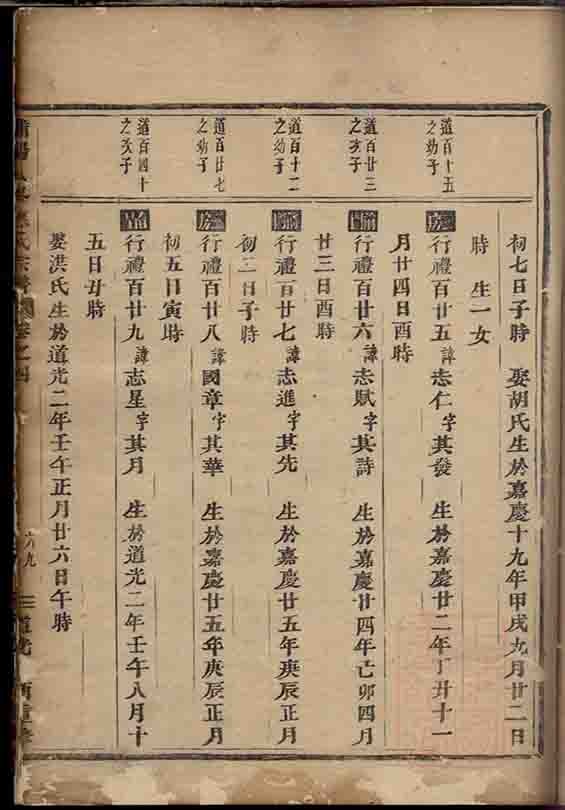 初七日子時 娶胡氏生於嘉慶十九年甲戌九月廿二日
時 生一女
道百十五
之幼子
行禮百廿五諱志仁字其發 生於嘉慶廿二年丁丑十一
月廿四日酉時
道百廿三
之次子
行禮百廿六諱志賦字其詩 生於嘉慶廿四年己卯四月
廿三日酉時
道百十二
之幼子
行禮百廿七諱志進字其先 生於嘉慶廿五年庚辰正月
初三日子時
道百廿七
之幼子
房
行禮百廿八諱國章字其華 生於嘉慶廿五年庚辰正月
初五日寅時
道百四十
之次子
行禮百廿九諱志星字其月 生於道光二年壬午八月十
五日丑時
娶洪氏生於道光二年壬午正月廿六日午時
氏宗譜 卷之四
六九
重修